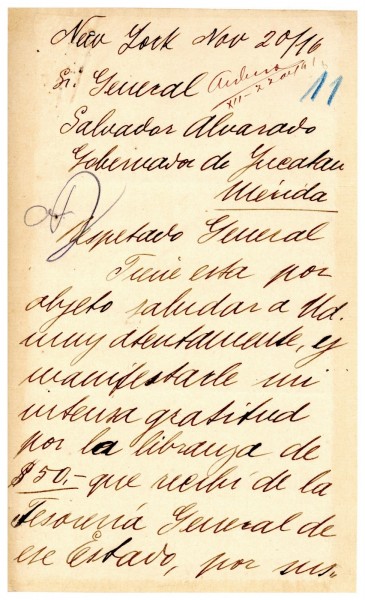 New York Nov 20/16
Sr. General
11
Salvador Alvarado
Gobernador de Yucatan
Mérida
Respetado General
Tiene esta por
objeto saludar a Ud.
muy atentamente, y
manifestarle mi
intensa gratitud
por la libranza de
$50.- que recibí de la
Tesorería General de
ese Estado, por ins-